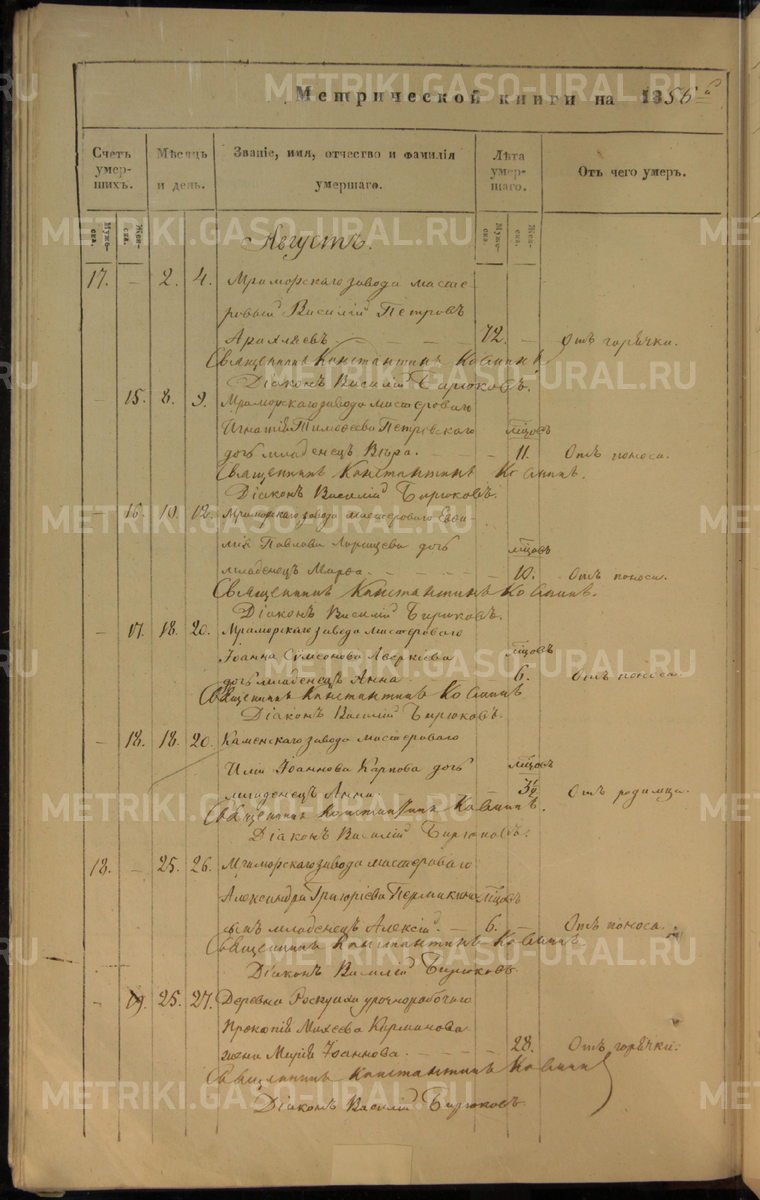 METRIKI.GASO-URAL.RU
Метрической книги на 1856й
Счетъ умер-шихъ.
Мѣсяцъ и день.
Званіе, имя, отчество и фамилія умершаго.
Лѣта умер-шаго.
Отъ чего умеръ.
Муже-ска.
Жен-ска.
Муже-ска.
Жен-ска.
Августъ.
17. - 2. 4. Мраморскаго завода масте
роваій Василій Петровъ
72. - Отъ горѣчки.
Священникъ Константинъ
Діаконъ Василій Бирюковъ.
15. 8. 9. Мраморскаго завода мастероваго
Игнатія Тимофеева Петревскаго мѣцовъ
дочь младенецъ Вѣра. 11. Отъ поноса.
Священникъ Константинъ
Діаконъ Василій Бирюковъ.
- 16. 10. 12. Мраморскаго завода мастероваго Евфи
мія Павлова дочь мѣцовъ
младенецъ Марѳа. 10. Отъ поноса.
Священникъ Константинъ
Діаконъ Василій Бирюковъ.
- 17. 18. 20. Мраморскаго завода мастероваго
Іоанна Симеонова Аверкіева мѣцовъ
дочь младенецъ Анна. 6. Отъ поноса.
Священникъ Константинъ
Діаконъ Василій Бирюковъ.
- 18. 18. 20. Каменскаго завода мастероваго
Иліи Іоаннова Карпова дочь мѣцовъ
младенецъ Анна. Отъ родимца.
Священникъ Константинъ
Діаконъ Василій Бирюковъ.
18. - 25. 26. Мраморскаго завода мастероваго
Александра Григоріева Пермикина мѣцовъ
сынъ младенецъ Алексій. 6. - Отъ поноса.
Священникъ Константинъ
Діаконъ Василій Бирюковъ.
- 19. 25. 27. Деревни Роскуиха урочнорабочаго
Прокопія Михеева Кирманова
жена Марія Іоаннова. 28. Отъ горѣчки.
Священникъ Константинъ
Діаконъ Василій Бирюковъ.